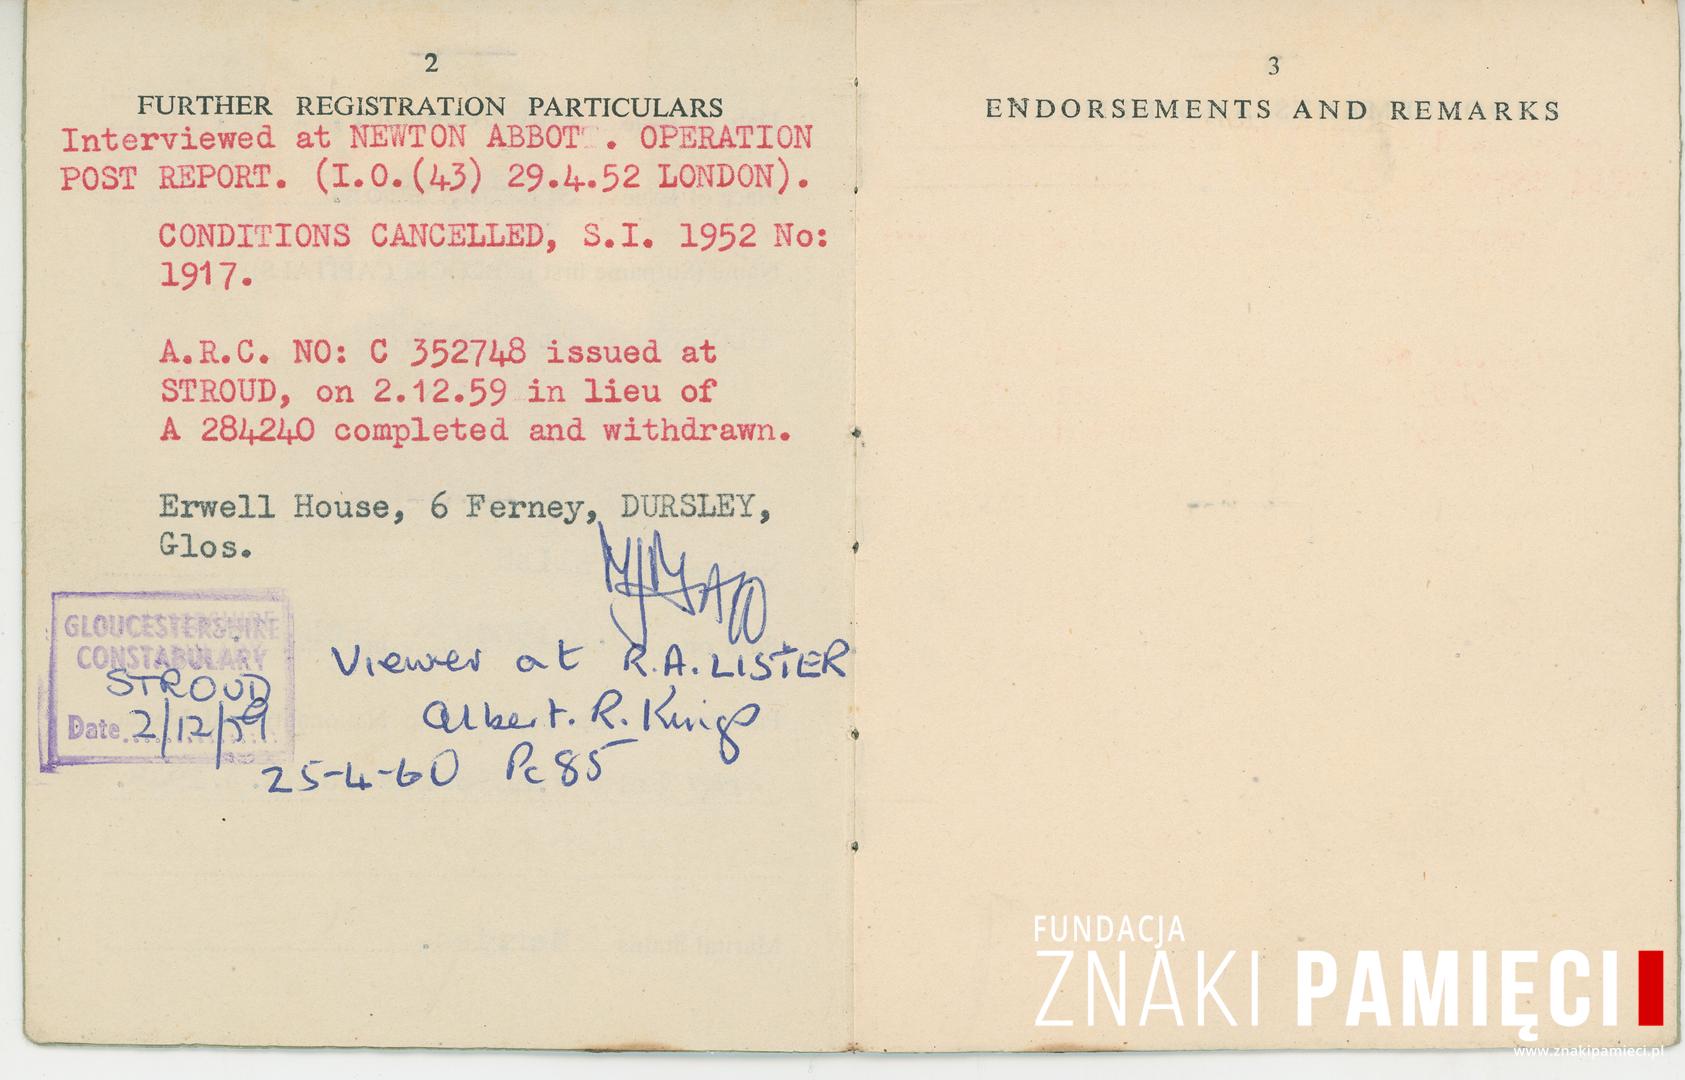 2
FURTHER REGISTRATION PARTICULARS
Interviewed at NEWTON ABBOT . OPERATION
POST REPORT. (I.O.(43) 29.4.52 LONDON).
CONDITIONS CANCELLED, S.I. 1952 No:
1917.
A.R.C. NO: C 352748 issued at
STROUD, on 2.12.59 in lieu of
A 284240 completed and withdrawn.
Erwell House, 6 Ferney, DURSLEY,
Glos.
GLOUCESTERSHIRE
CONSTABULARY
STROUD
Date 2/12/59
Viewer at R.A. LISTER
Albert. R. Kings
25-4-60 Pc 85
3
ENDORSEMENTS AND REMARKS
FUNDACJA
ZNAKI PAMIĘCI
www.znakipamieci.pl